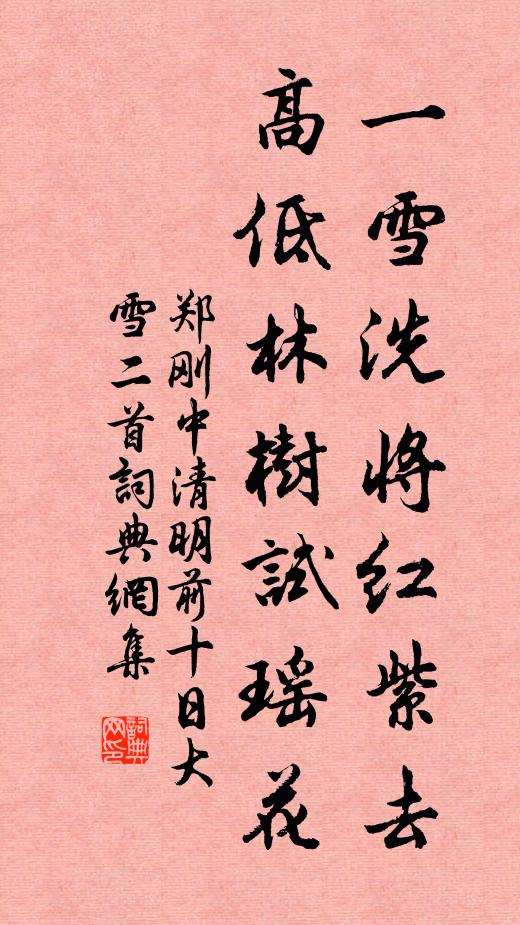 一雪洗將红紫去
高低林樹試瑶花
郑刚中清明前十日大
雪二首詞典網集
詞典网印